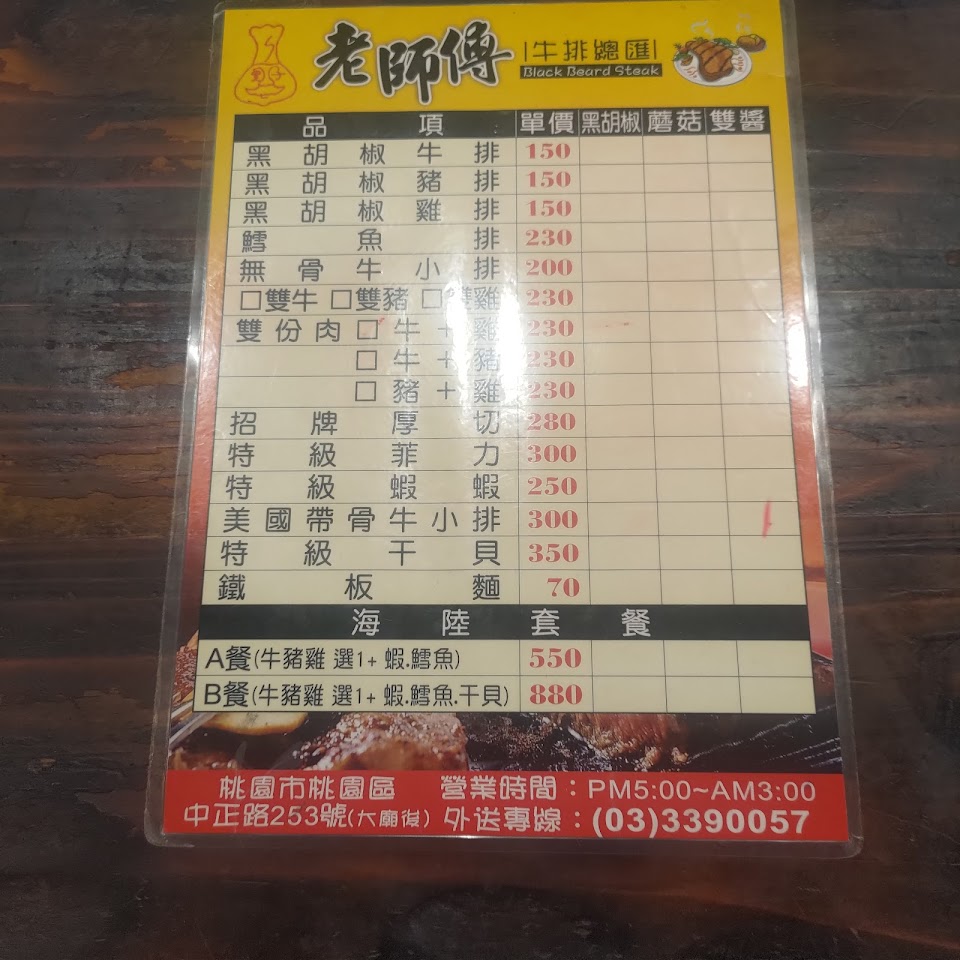 老師傅 牛排總匯
Black Beard Steak
品項 單價 黑胡椒 蘑菇 雙醬
黑胡椒牛排 150
黑胡椒豬排 150
黑胡椒雞排 150
鱈魚排 230
無骨牛小排 200
□雙牛 □雙豬 □雙雞 230
雙份肉 □牛+雞 230
□牛+豬 230
□豬+雞 230
招牌厚切 280
特級菲力 300
特級蝦蝦 250
美國帶骨牛小排 300
特級干貝 350
鐵板麵 70
海陸套餐
A餐(牛豬雞 選1+ 蝦.鱈魚) 550
B餐(牛豬雞 選1+ 蝦.鱈魚.干貝) 880
桃園市桃園區 營業時間：PM5:00~AM3:00
中正路253號(大廟後) 外送專線：(03)3390057